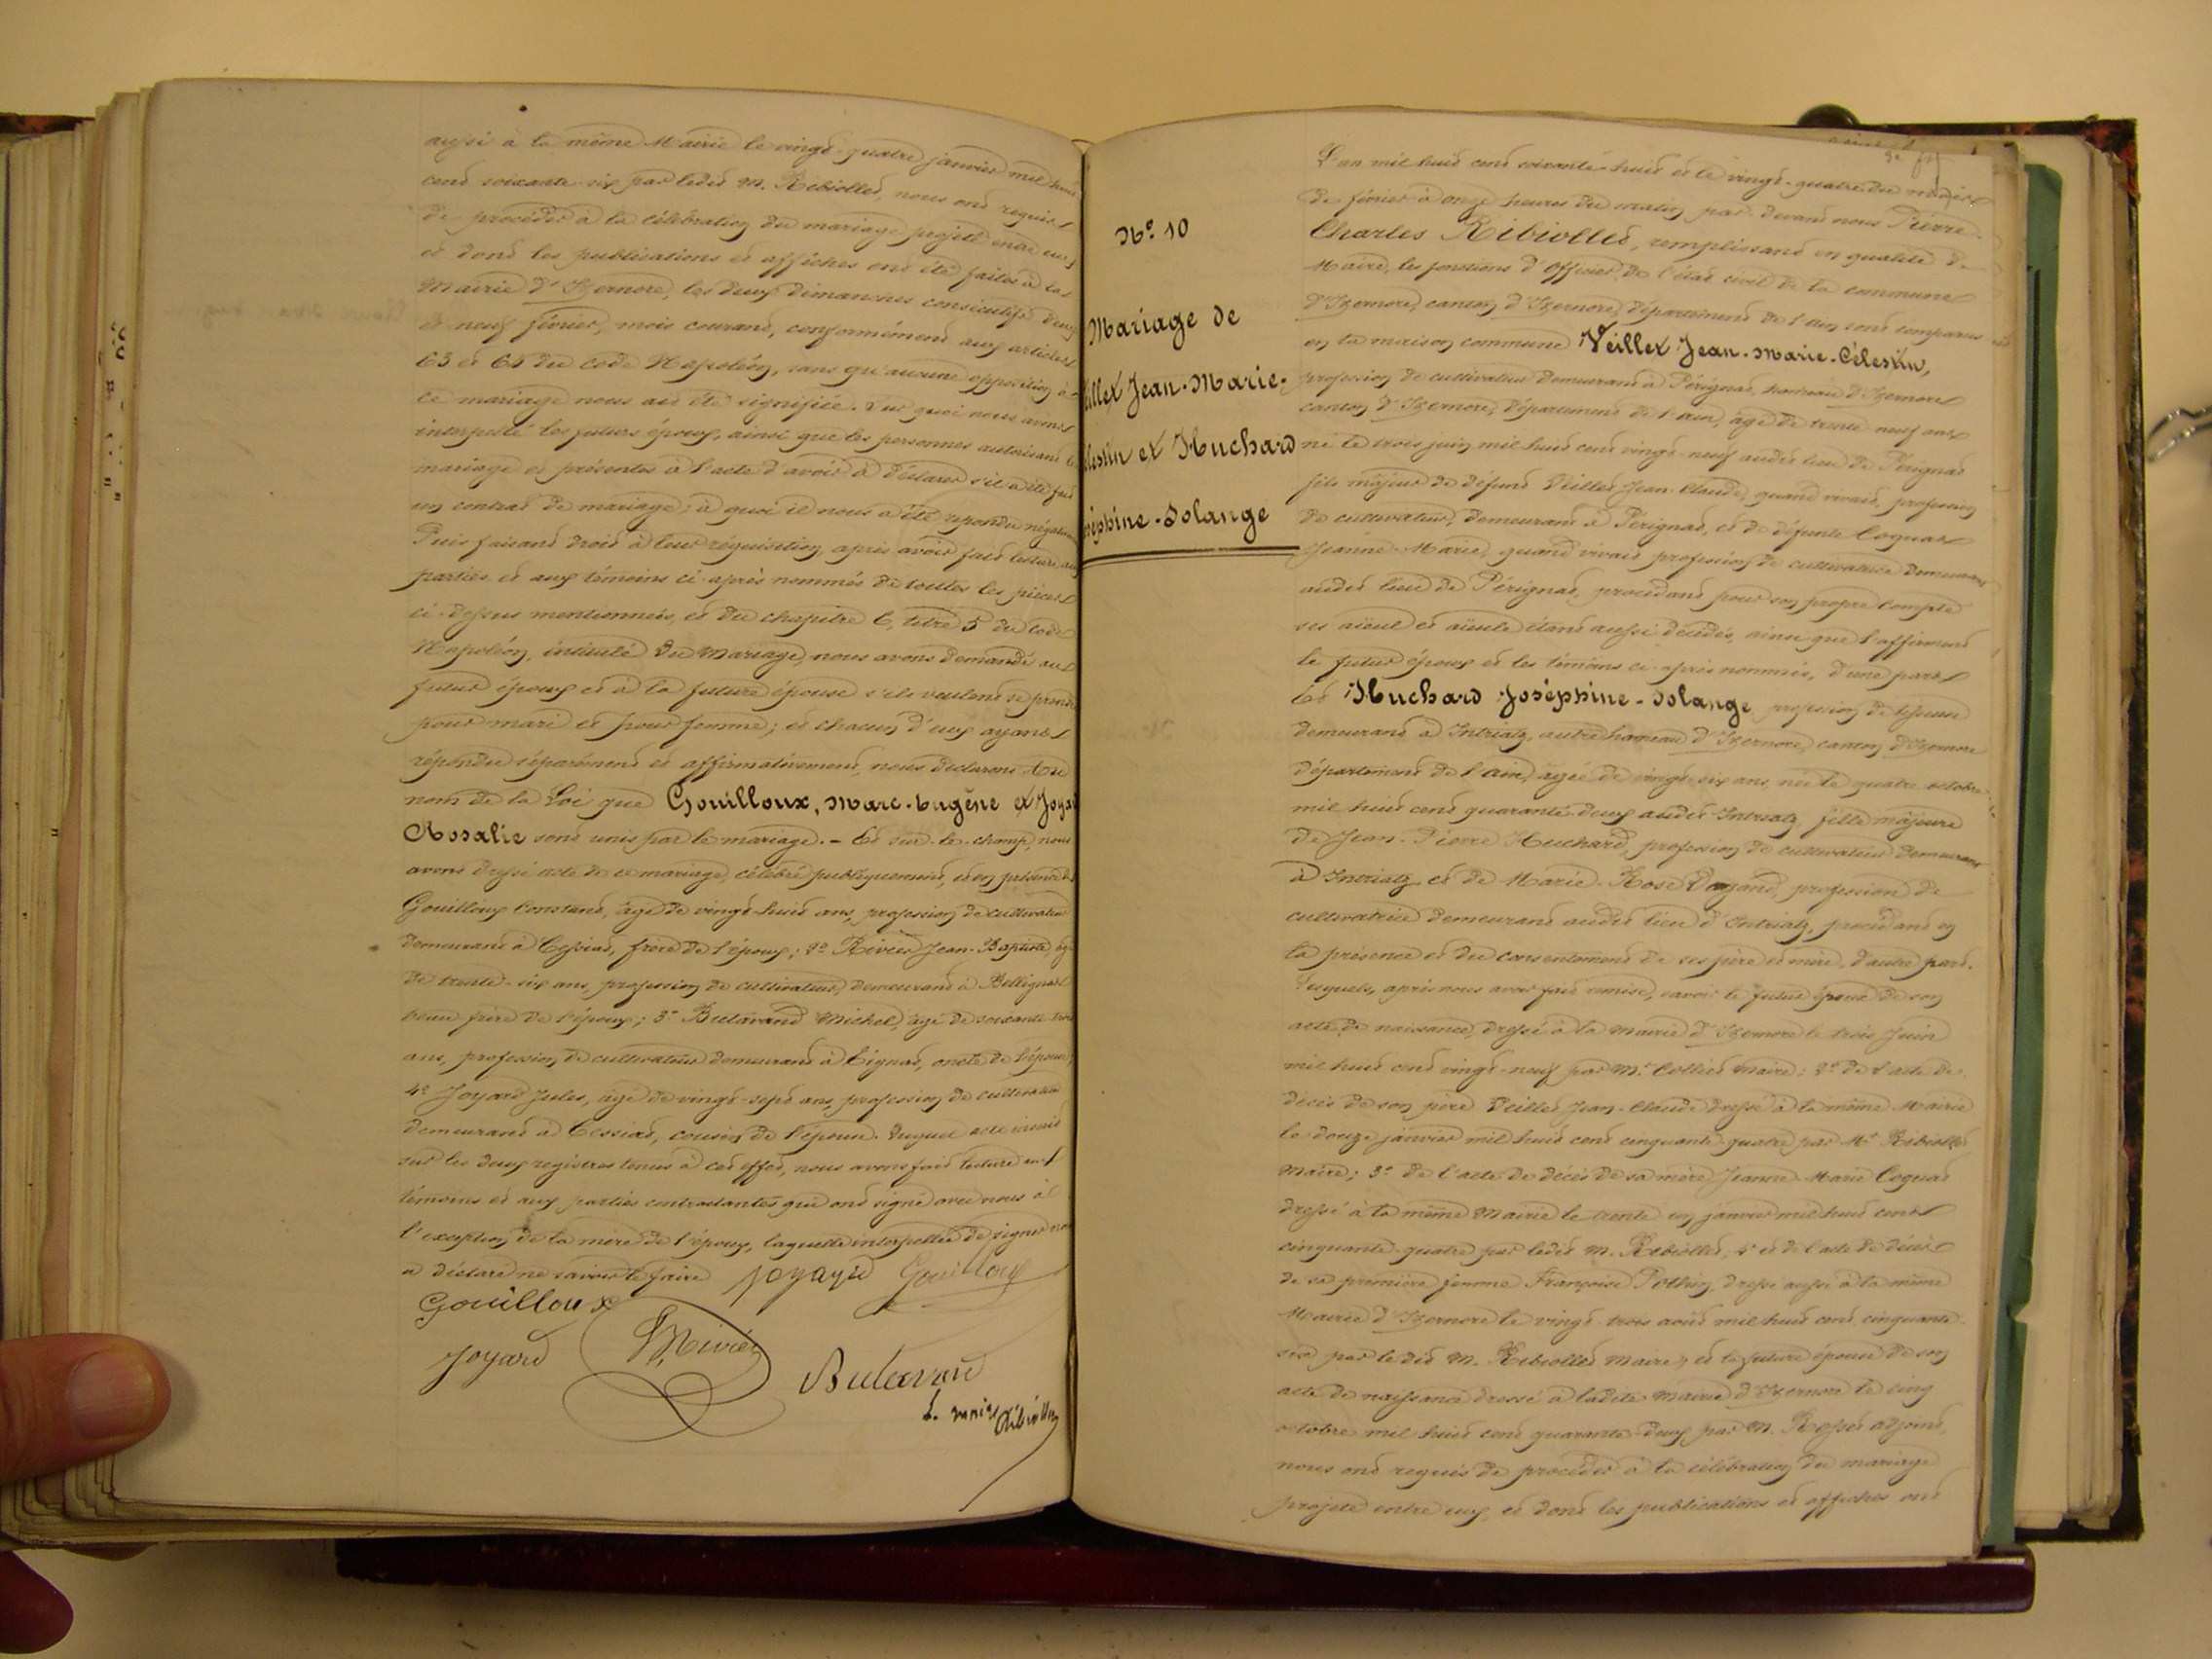 aussi à la même Mairie le vingt-quatre janvier mil huit
cent soixante-six par ledit M. Ribiollet, nous ont requis
de procéder à la célébration du mariage projeté entre eux
et dont les publications et affiches ont été faites à la
Mairie d'Izernore, les deux dimanches consécutifs deux
et neuf février, mois courant, conformément aux articles
63 et 64 du code Napoléon, sans qu'aucune opposition à
ce mariage nous ait été signifiée. Sur quoi nous avons
interpellé les futurs époux, ainsi que les personnes autorisant le
mariage et présentes à l'acte d'avoir à déclarer s'il a été fait
un contrat de mariage; à quoi il nous a été répondu
Puis faisant droit à leur réquisition, après avoir fait lecture aux
parties et aux témoins ci-après nommés de toutes les pièces
ci-dessus mentionnées, et du chapitre 6, titre 5 du code
Napoléon, intitulé du Mariage, nous avons demandé au
futur époux et à la future épouse s'ils veulent se prendre
pour mari et pour femme; et chacun d'eux ayant
répondu séparément et affirmativement, nous déclarons au
nom de la Loi que Gouilloux, Marc-Eugène et Joyard
Rosalie sont unis par le mariage. - Et sur-le-champ, nous
avons dressé acte de ce mariage, célébré publiquement, et en présence de
Gouilloux Constant, âgé de vingt-huit ans, profession de cultivateur
demeurant à Cessiat, frère de l'époux; 2º Rivier Jean-Baptiste, âgé
de trente-six ans, profession de cultivateur, demeurant à Bellignat
beau frère de l'époux; 3º Butavand Michel, âgé de soixante-trois
ans, profession de cultivateur demeurant à Lignat, oncle de l'épouse;
4º Joyard Jules, âgé de vingt-sept ans, profession de cultivateur
demeurant à Cessiat, cousin de l'épouse. Duquel acte inscrit
sur les deux registres tenus à cet effet, nous avons fait lecture aux
témoins et aux parties contractantes qui ont signé avec nous à
l'exception de la mère de l'époux, laquelle interpellée de signer nous
a déclaré ne savoir le faire Joyard Gouilloux
Gouilloux
Joyard Rivier
Butavand
L. maire Ribiollet
Nº. 10
Mariage de
illet Jean-Marie-
élestin et Huchard
oséphine-Solange
L'an mil huit cent soixante-huit et le vingt-quatre du mois
de février à onze heures du matin, par-devant nous Pierre-
Charles Ribiollet, remplissant en qualité de
Maire, les fonctions d'Officier de l'état civil de la commune
d'Izernore, canton d'Izernore, département de l'Ain, sont comparus
en la maison commune Veillet Jean-Marie-Célestin,
profession de cultivateur demeurant à Pérignat, hameau d'Izernore
canton d'Izernore, département de l'Ain, âgé de trente neuf ans
né le trois juin mil huit cent vingt-neuf audit lieu de Pérignat
fils majeur de défunt Veillet Jean-Claude, quand vivait, profession
de cultivateur, demeurant à Pérignat, et de défunte Coquat
Jeanne-Marie, quand vivait profession de cultivatrice demeurant
audit lieu de Pérignat, procédant pour son propre compte
ses aïeul et aïeule étant aussi décédés, ainsi que l'affirment
le futur époux et les témoins ci-après nommés, d'une part
Et Huchard Joséphine-Solange profession de
demeurant à Intriatz, autre hameau d'Izernore, canton d'Izernore
département de l'Ain, âgée de vingt-six ans, née le quatre octobre
mil huit cent quarante-deux audit Intriatz, fille majeure
de Jean-Pierre Huchard, profession de cultivateur demeurant
à Intriatz et de Marie-Rose profession de
cultivatrice demeurant audit lieu d'Intriatz, procédant en
la présence et du consentement de ses père et mère, d'autre part.
Lesquels, après nous avoir fait remise, savoir le futur époux de son
acte de naissance, dressé à la mairie d'Izernore le trois Juin
mil huit cent vingt-neuf par Mr. Collet maire; 2º de l'acte de
décès de son père Veillet Jean-Claude dressé à la même Mairie
le douze janvier mil huit cent cinquante-quatre par Mr Ribiollet
maire; 3º de l'acte de décès de sa mère Jeanne-Marie Coquat
dressé à la même Mairie le trente un janvier mil huit cent
cinquante-quatre par ledit M. Ribiollet, 4º et de l'acte de décès
de sa première femme Françoise Pothin, dressé aussi à la même
Mairie d'Izernore le vingt-trois août mil huit cent cinquante-
six par ledit M. Ribiollet maire; et la future épouse de son
acte de naissance dressé à ladite mairie d'Izernore le cinq
octobre mil huit cent quarante-deux par M. adjoint
nous ont requis de procéder à la célébration du mariage
projeté entre eux, et dont les publications et affiches ont